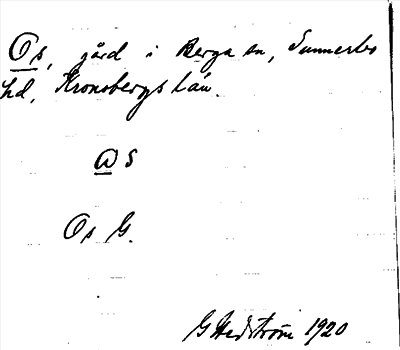 Os, gård i Berga sn, Sunnerbo
hd, Kronobergs län.
ω s
Os G.
G Hedström 1920